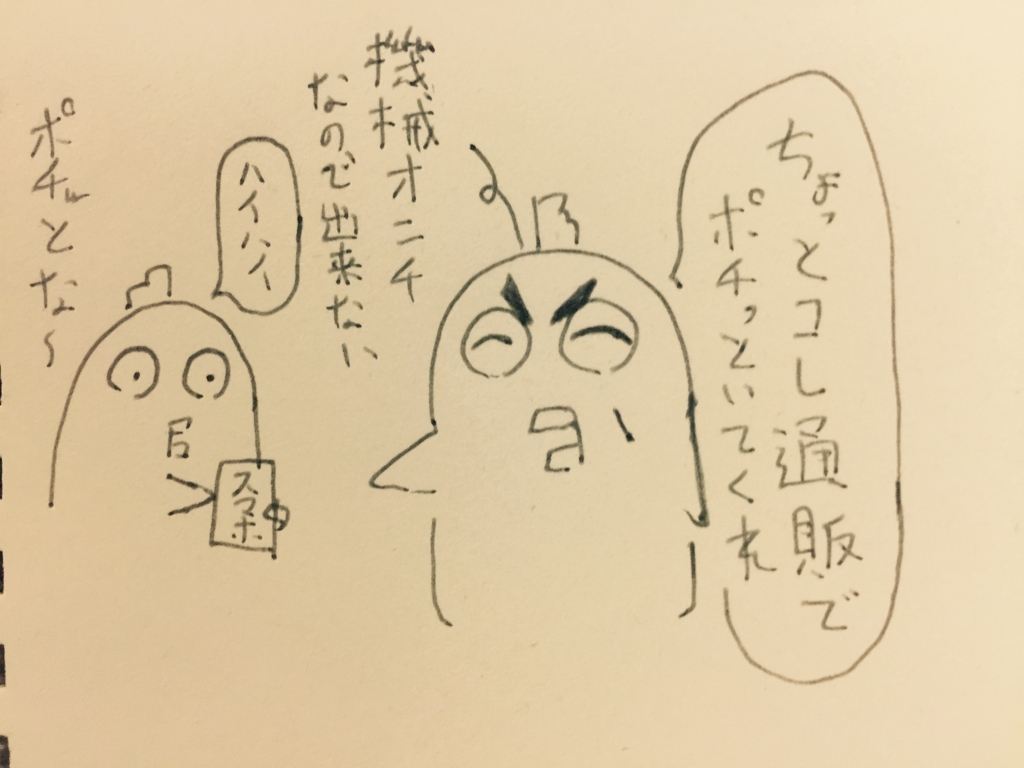 ちょっとコレ通販で
ポチッといてくれ
機械オンチ
なので出来ない
ハイハイ
スマホ
ポチッとな〜